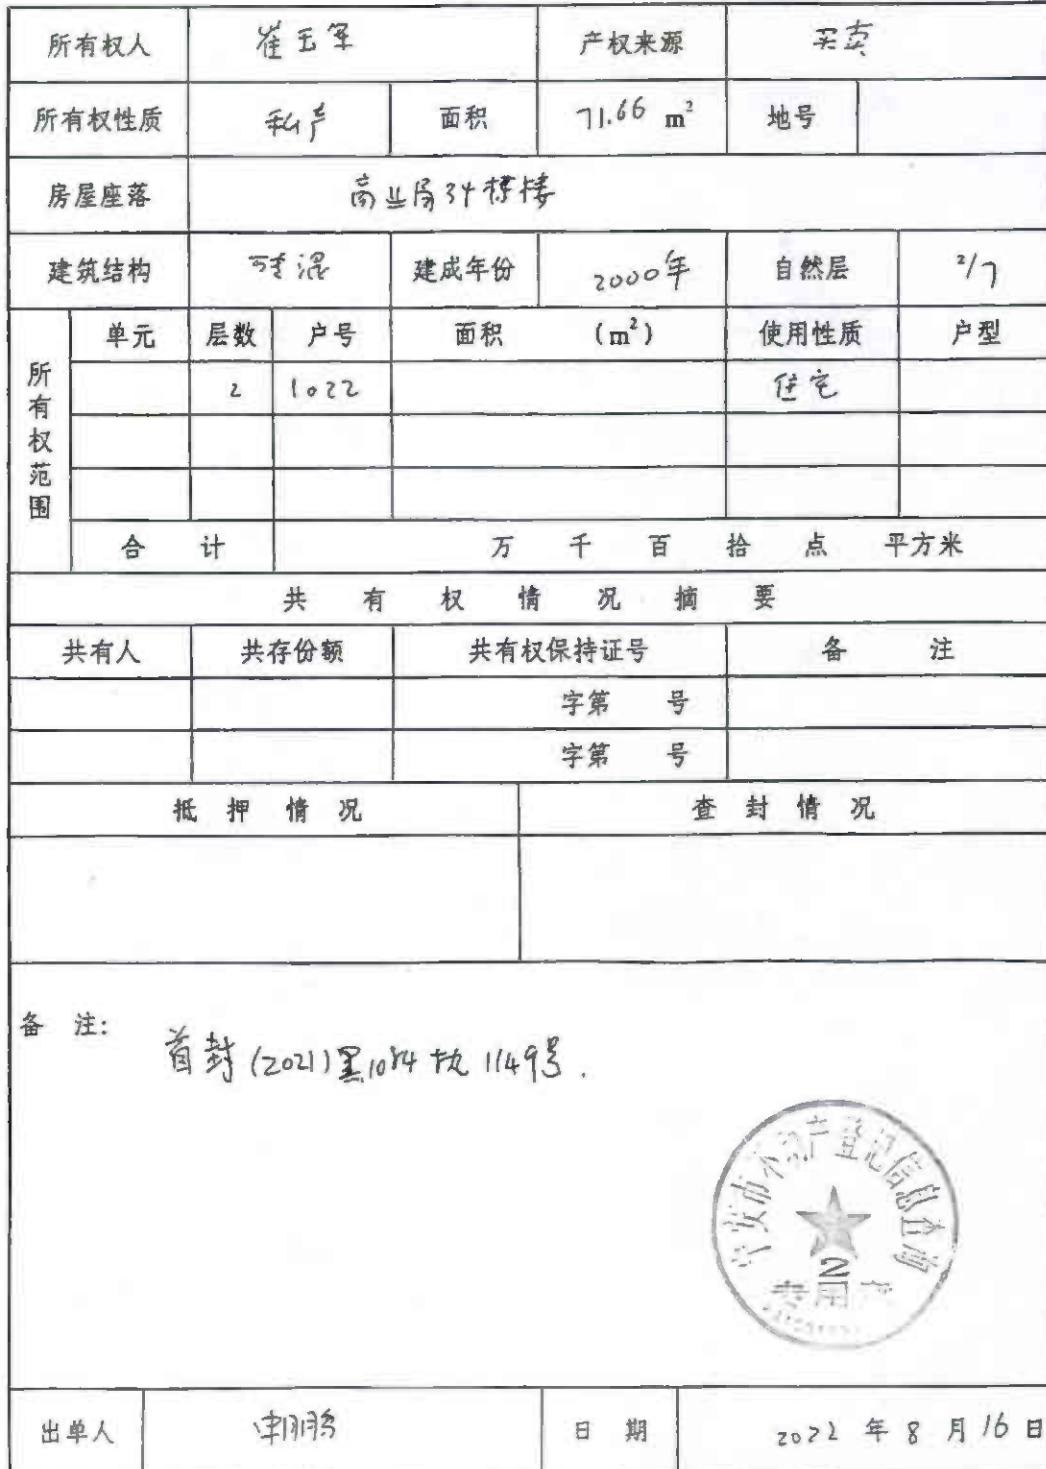 所有权人 崔玉军 产权来源 买卖
所有权性质 私产 面积 71.66 m² 地号
房屋座落 商业局34栋楼
建筑结构 砖混 建成年份 2000年 自然层 2/7
所有权范围 单元 层数 户号 面积 (m²) 使用性质 户型
2 1022 住宅
合 计 万 千 百 拾 点 平方米
共 有 权 情 况 摘 要
共有人 共存份额 共有权保持证号 备 注
字第 号
字第 号
抵 押 情 况 查 封 情 况
备 注:
首封(2021)黑1084执1149号.
宁安市不动产登记信息查询
2
专用章
出单人 日 期 2022 年 8 月 16 日